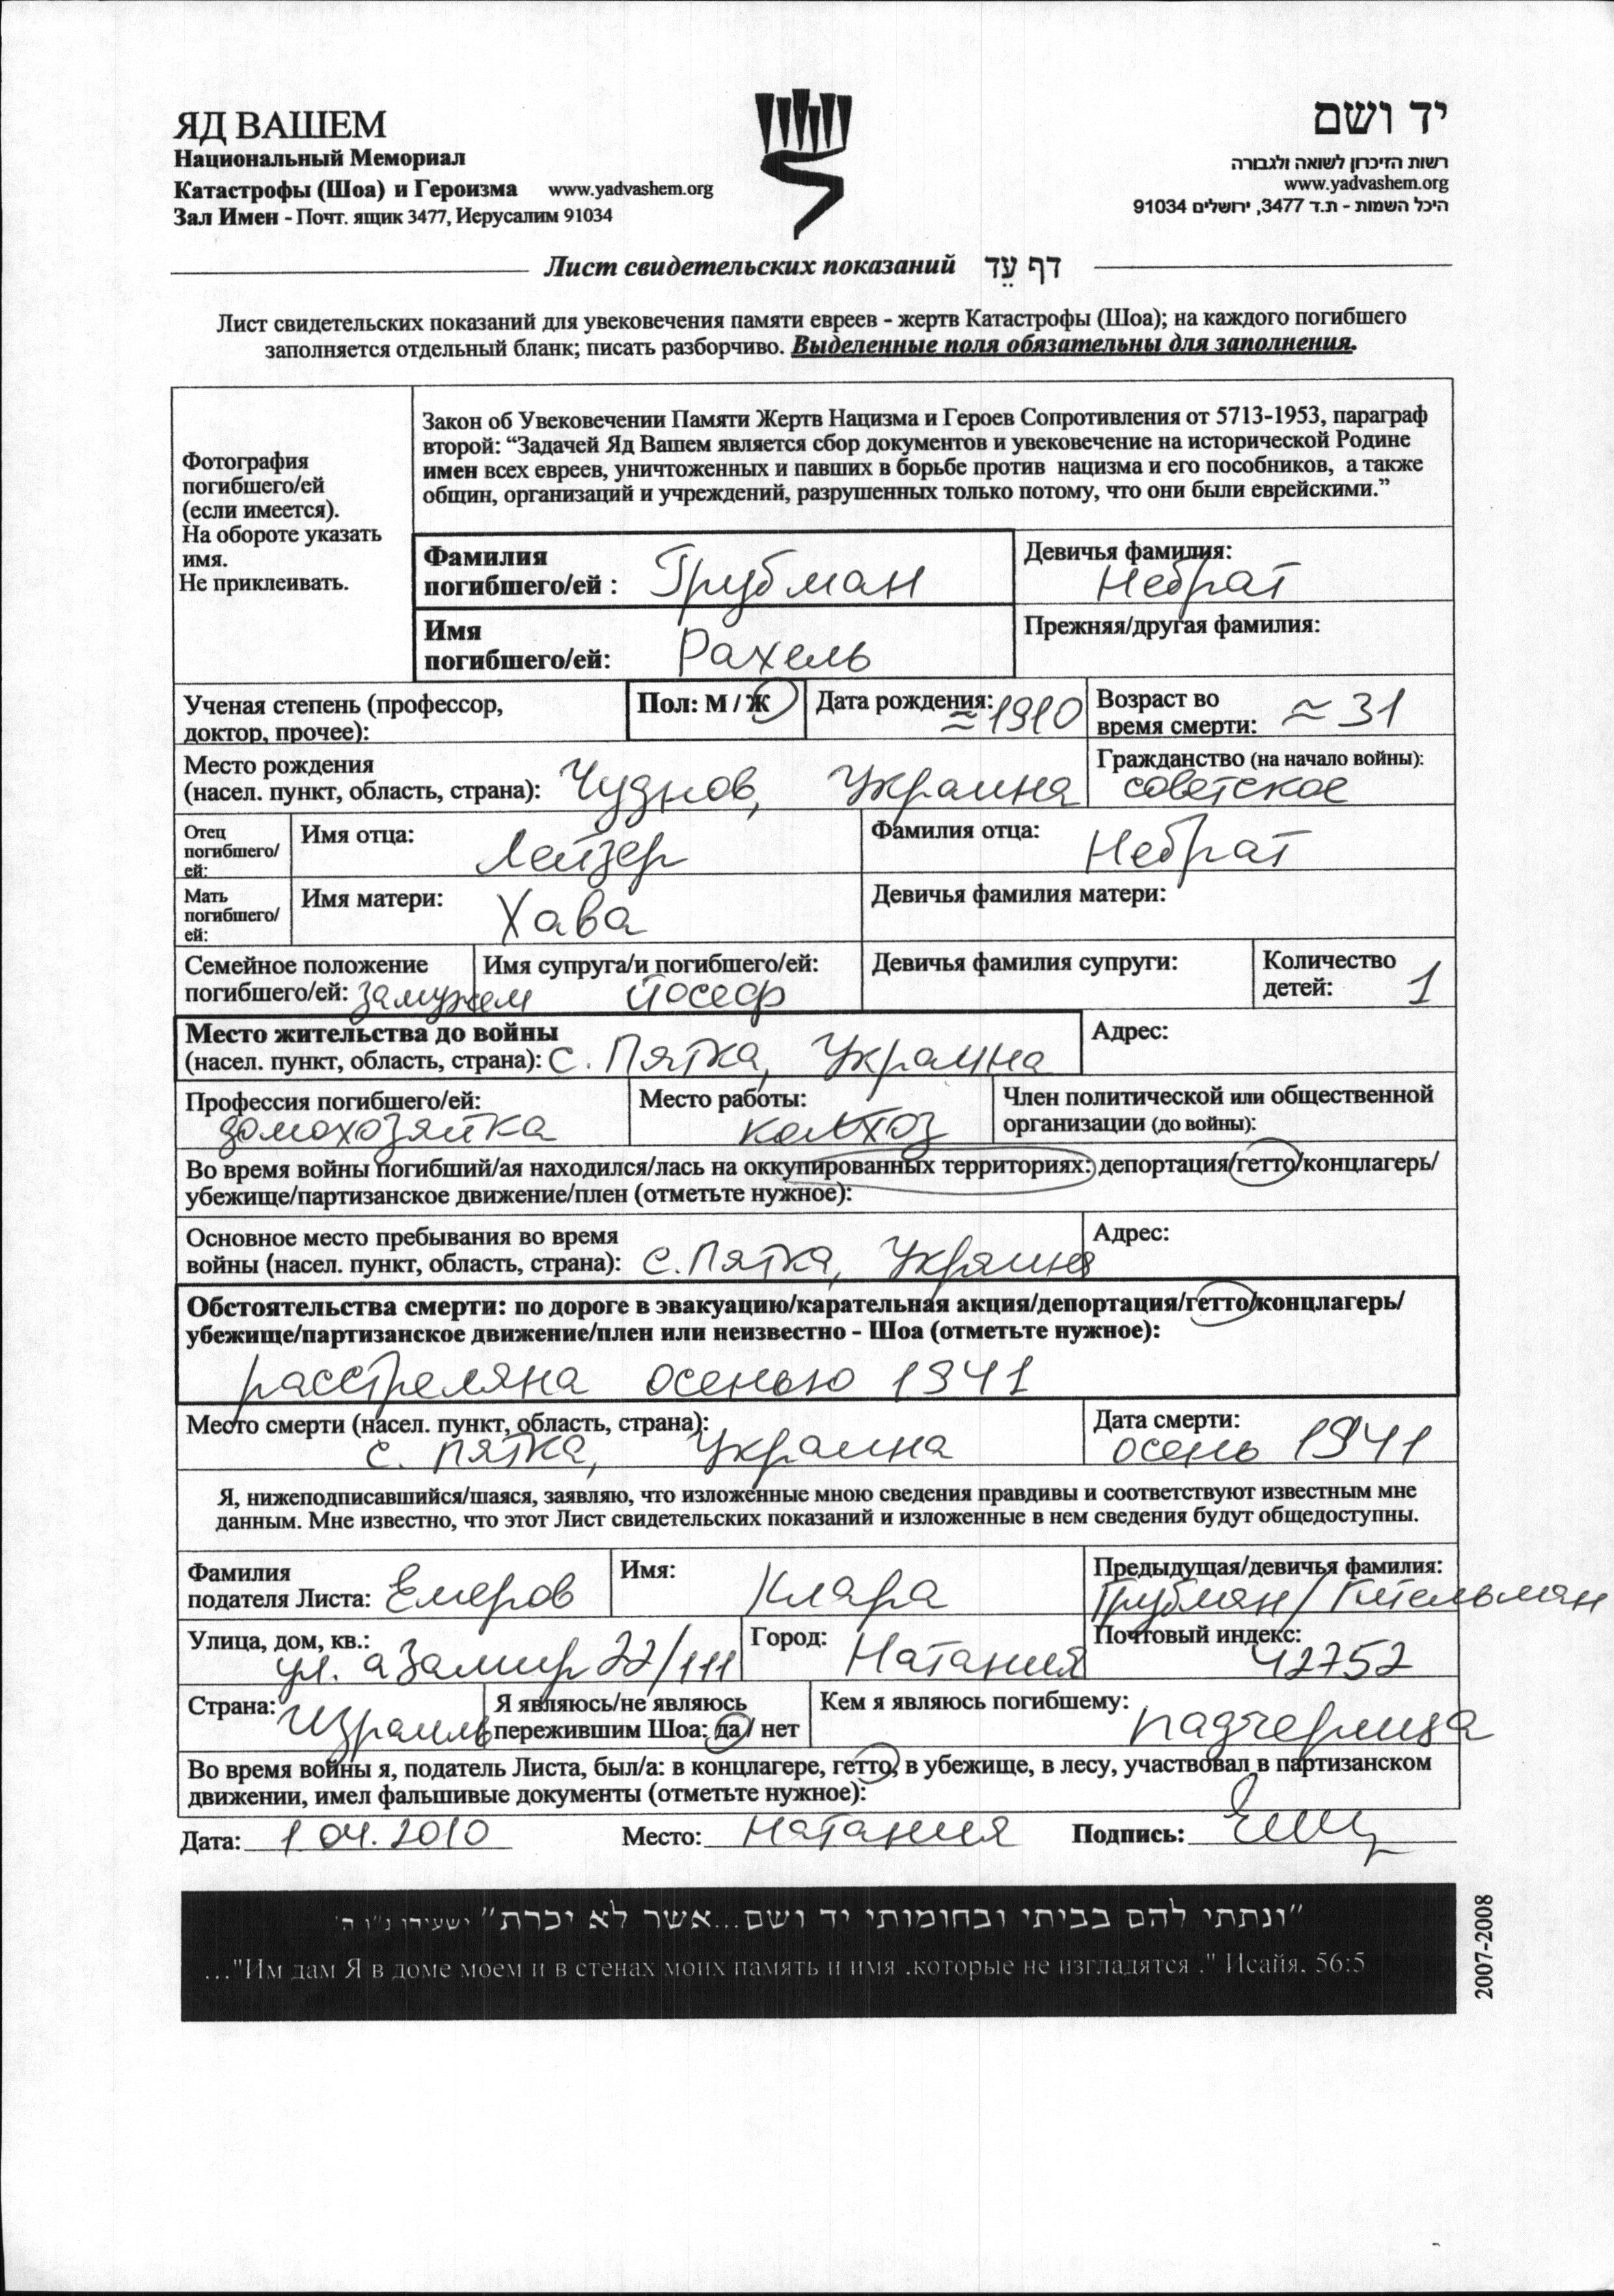 ЯД ВАШЕМ
Национальный Мемориал
Катастрофы (Шоа) и Героизма www.yadvashem.org
Зал Имен - Почт. ящик 3477, Иерусалим 91034
יד ושם
רשות הזיכרון לשואה ולגבורה
www.yadvashem.org
היכל השמות - ת.ד 3477, ירושלים 91034
Лист свидетельских показаний דף עֵד
Лист свидетельских показаний для увековечения памяти евреев - жертв Катастрофы (Шоа); на каждого погибшего
заполняется отдельный бланк; писать разборчиво. Выделенные поля обязательны для заполнения.
Фотография
погибшего/ей
(если имеется).
На обороте указать
имя.
Не приклеивать.
Закон об Увековечении Памяти Жертв Нацизма и Героев Сопротивления от 5713-1953, параграф
второй: “Задачей Яд Вашем является сбор документов и увековечение на исторической Родине
имен всех евреев, уничтоженных и павших в борьбе против нацизма и его пособников, а также
общин, организаций и учреждений, разрушенных только потому, что они были еврейскими.”
Фамилия
погибшего/ей : Грубман
Девичья фамилия:
Небрат
Имя
погибшего/ей: Рахель
Прежняя/другая фамилия:
Ученая степень (профессор,
доктор, прочее):
Пол: М / Ж
Дата рождения:
≈1910
Возраст во
время смерти: ≈ 31
Место рождения
(насел. пункт, область, страна): Чуднов, Украина
Гражданство (на начало войны):
советское
Отец
погибшего/
ей:
Имя отца:
Лейзер
Фамилия отца:
Небрат
Мать
погибшего/
ей:
Имя матери: Хава
Девичья фамилия матери:
Семейное положение
погибшего/ей: замужем
Имя супруга/и погибшего/ей:
Йосеф
Девичья фамилия супруги:
Количество
детей: 1
Место жительства до войны
(насел. пункт, область, страна): с. Пятка, Украина
Адрес:
Профессия погибшего/ей:
домохозяйка
Место работы:
колхоз
Член политической или общественной
организации (до войны):
Во время войны погибший/ая находился/лась на оккупированных территориях: депортация/гетто/концлагерь/
убежище/партизанское движение/плен (отметьте нужное):
Основное место пребывания во время
войны (насел. пункт, область, страна): с. Пятка, Украина
Адрес:
Обстоятельства смерти: по дороге в эвакуацию/карательная акция/депортация/гетто/концлагерь/
убежище/партизанское движение/плен или неизвестно - Шоа (отметьте нужное):
расстреляна осенью 1941
Место смерти (насел. пункт, область, страна):
с. Пятка, Украина
Дата смерти:
осень 1941
Я, нижеподписавшийся/шаяся, заявляю, что изложенные мною сведения правдивы и соответствуют известным мне
данным. Мне известно, что этот Лист свидетельских показаний и изложенные в нем сведения будут общедоступны.
Фамилия
подателя Листа: Емеров
Имя:
Клара
Предыдущая/девичья фамилия:
Грубман/
Улица, дом, кв.:
ул. а Замир 22/111
Город:
Натания
Почтовый индекс:
42752
Страна: Израиль
Я являюсь/не являюсь
пережившим Шоа: да / нет
Кем я являюсь погибшему:
падчерица
Во время войны я, податель Листа, был/а: в концлагере, гетто, в убежище, в лесу, участвовал в партизанском
движении, имел фальшивые документы (отметьте нужное):
Дата: 1 04. 2010 Место: Натания Подпись:
"ונתתי להם בביתי ובחומותי יד ושם...אשר לא יכרת" ישעיהו נ"ו ה'
..."Им дам Я в доме моем и в стенах моих память и имя ,которые не изгладятся ." Исайя, 56:5
2007-2008